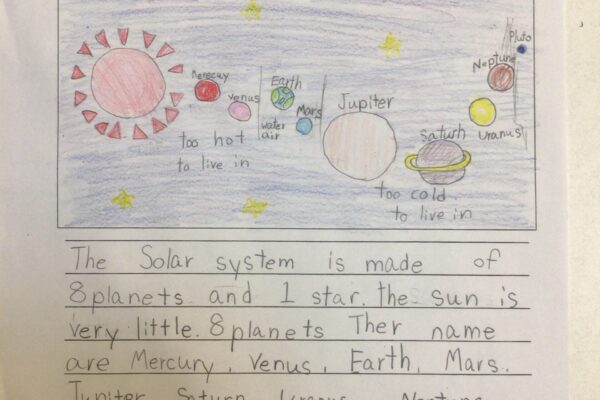 Pluto
Neptune
Merecuy
Venus
Earth
Mars
Jupiter
water
air
Saturh
Uranus
too hot
to live in
too cold
to live in
The Solar system is made of
8 planets and 1 star. the sun is
very little. 8 planets Ther name
are Mercury, Venus, Earth, Mars.
Jupiter Saturn Uranus Neptune